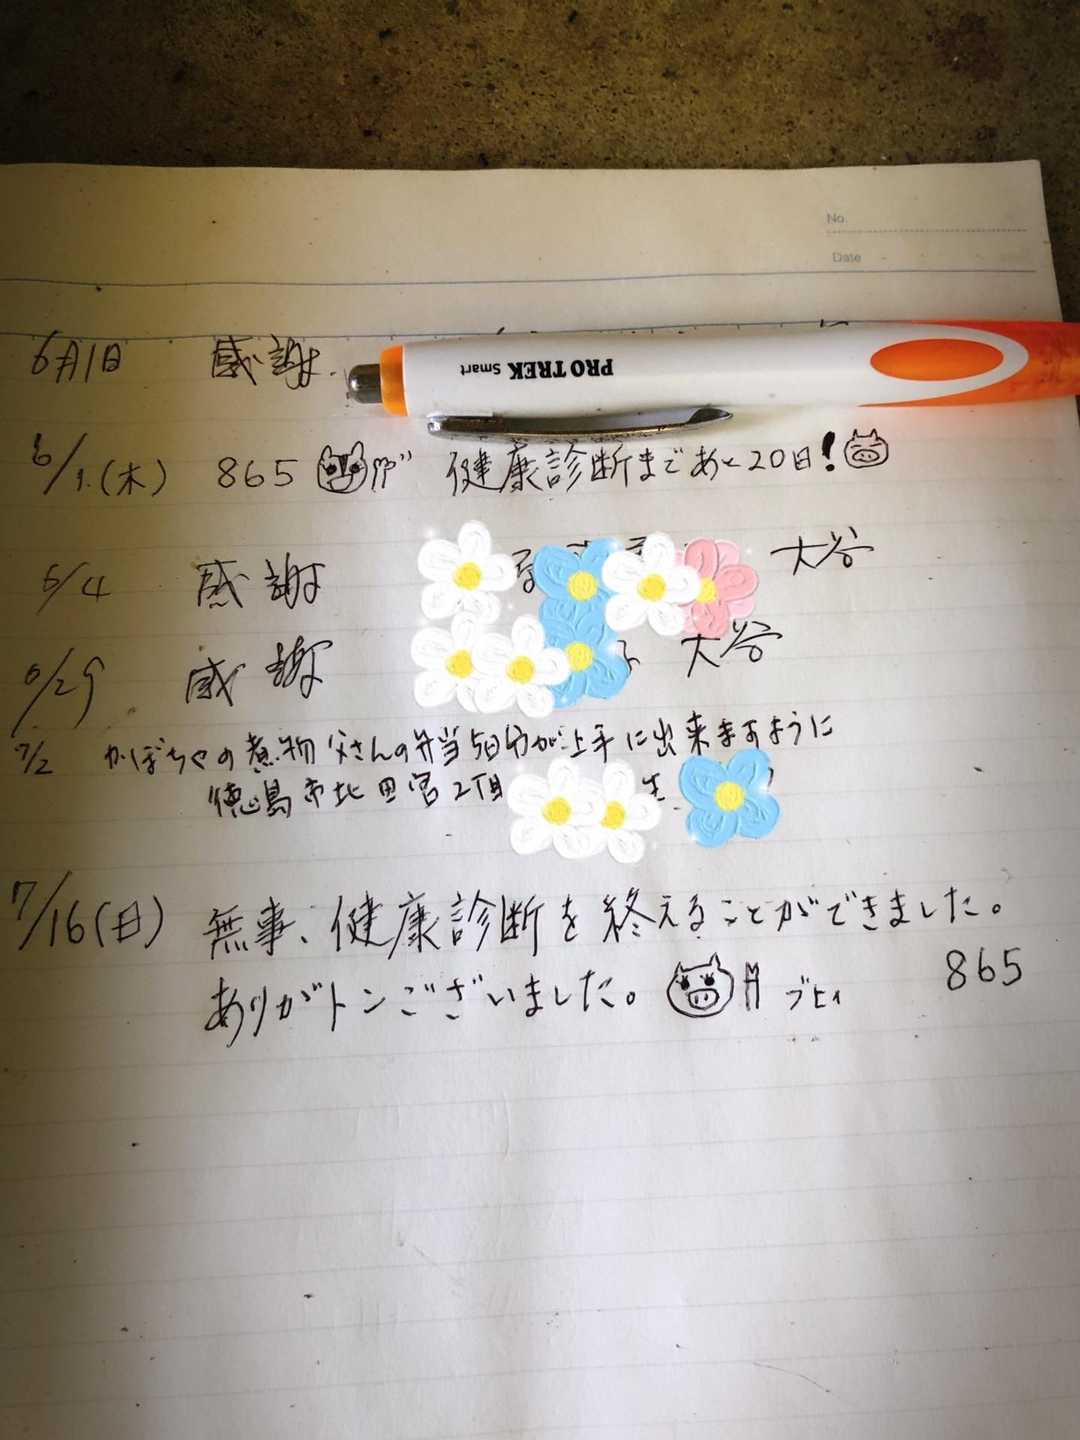 No.
Date
6月1日 感謝.
PRO TREK Smart
6/1.(木) 865 健康診断まであと20日!
6/4 感謝 大谷
6/29 感謝 大谷
7/2 かぼちゃの煮物 父さんの弁当5日分が上手に出来ますように
徳島市北田宮2丁目
7/16(日) 無事、健康診断を終えることができました。
ありがトンございました。 ブヒィ 865